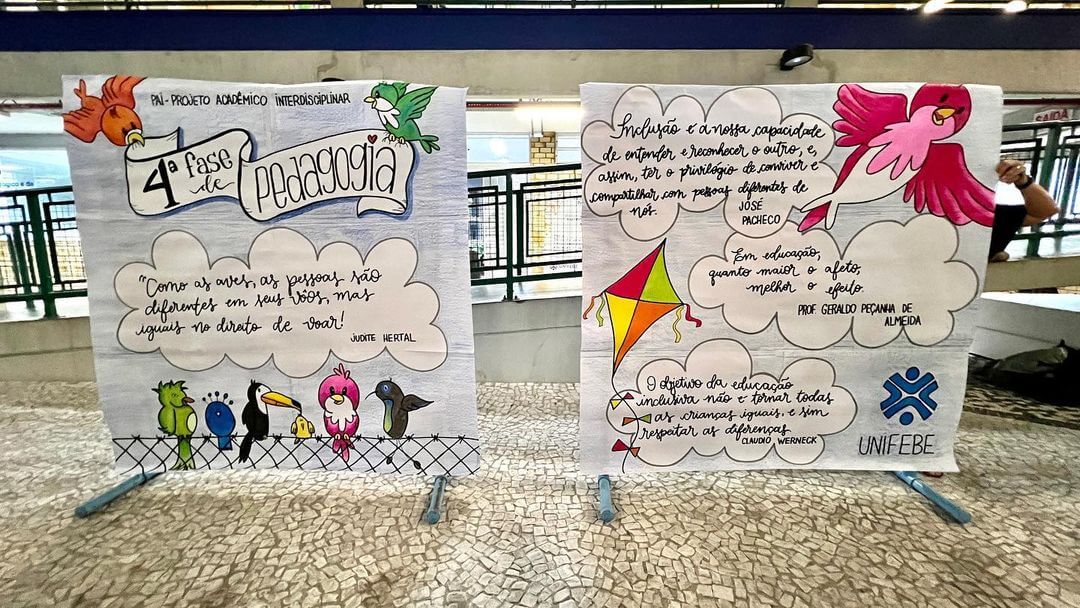 PAI - PROJETO ACADÊMICO INTERDISCIPLINAR
4ª fase
de
Pedagogia
"Como as aves, as pessoas são
diferentes em seus vôos, mas
iguais no direito de voar!
JUDITE HERTAL
Inclusão é a nossa capacidade
de entender e reconhecer o outro, e,
assim, ter o privilógio de conviver e
compartilhar com pessoas diferentes de
nós.
JOSÉ
PACHECO
Em educação,
quanto maior o afeto,
melhor o efeito.
PROF GERALDO PEÇANHA DE
ALMEIDA
O objetivo da educação
inclusiva não e tornar todas
as crianças iguais e sim
respeitar as diferenças
CLAUDIO WERNECK
UNIFEBE
SAÍDA